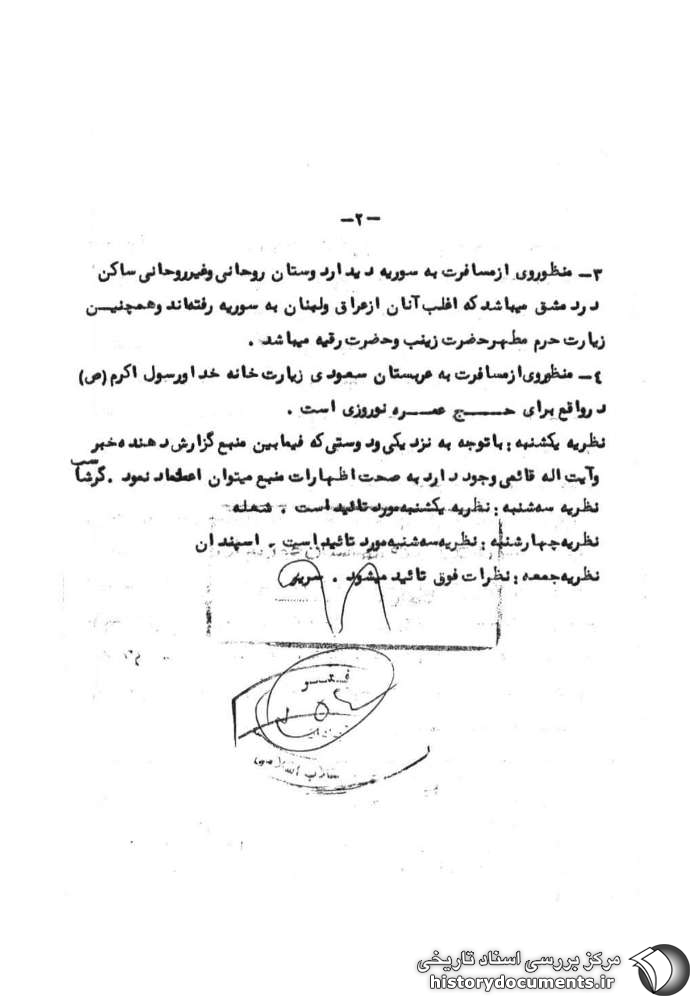 -۲-
۳- منظوروی ازمسافرت به سوریه دیداردوستان روحانی وغیرروحانی ساکن
دردمشق میباشدکه اغلب آنان ازعراق ولبنان به سوریه رفته‌اند وهمچنیـن
زیارت حرم مطهرحضرت زینب وحضرت رقیه میباشد .
۴- منظوروی ازمسافرت به عربستان سعودی زیارت خانه خداورسول اکرم (ص)
درواقع برای حــج عمــره نوروزی است .
نظریه یکشنبه : باتوجه به نزدیکی ودوستی که فیمابین منبع گزارش دهنده خبر
وآیت اله قائمی وجود دارد به صحت اظهارات منبع میتوان اعتماد نمود . گرشاسب
نظریه سه‌شنبه : نظریه یکشنبه مورد تائید است . شعله
نظریه چهارشنبه : نظریه سه‌شنبه مورد تائید است . اسپندان
نظریه جمعه : نظرات فوق تائید میشود .
۹۸
مرکز بررسی اسناد تاریخی
historydocuments.ir